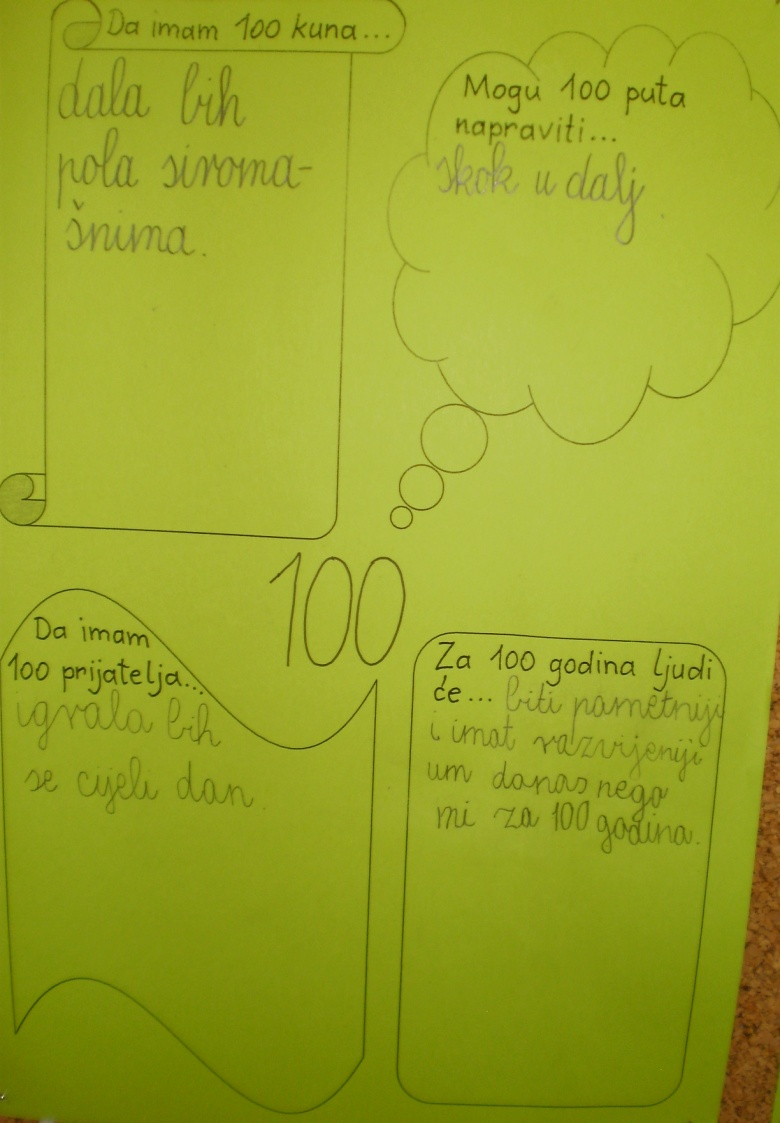 Da imam 100 kuna...
dala bih
pola siroma-
šnima.
Mogu 100 puta
napraviti...
skok u dalj
100
Da imam
100 prijatelja...
igrala bih
se cijeli dan.
Za 100 godina ljudi
će... biti pametniji
i imat razvijeniji
um danas nego
mi za 100 godina.